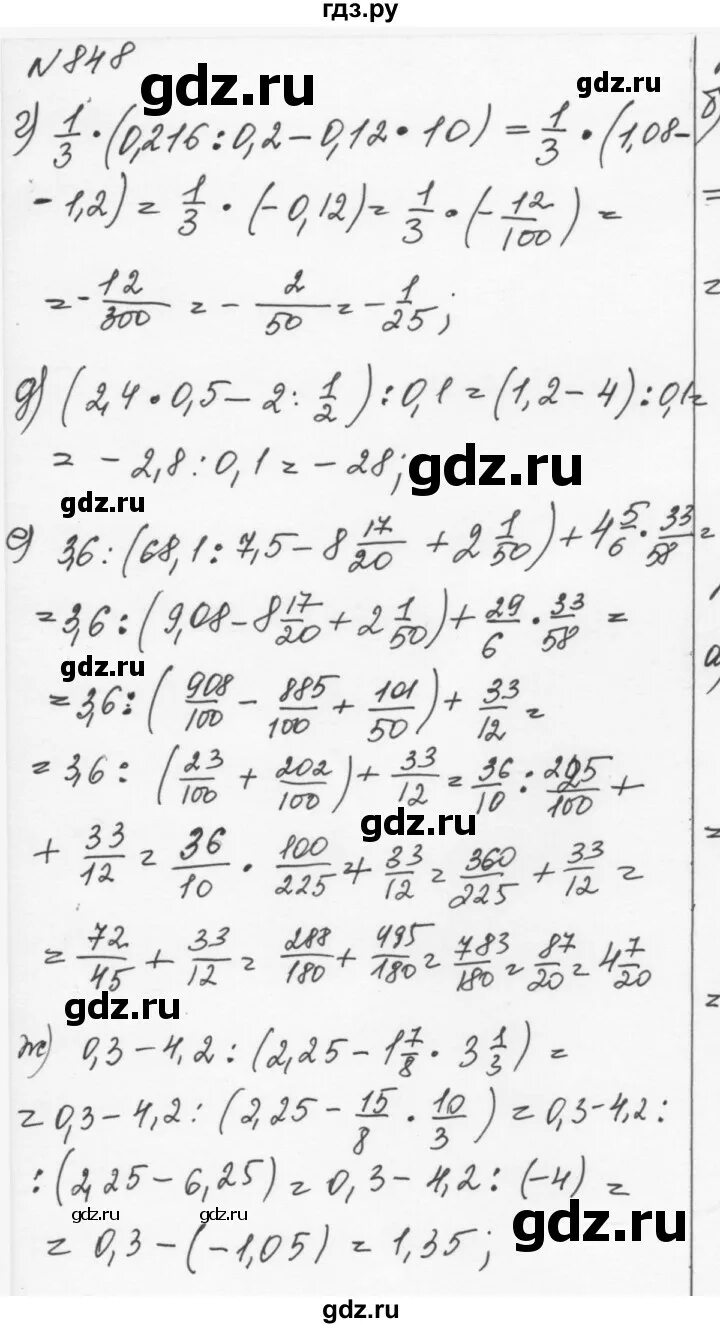 гдз.ру
N 848
gdz.ru
gdz.ru
г) 1/3 · (0,216 : 0,2 − 0,12 · 10) = 1/3 · (1,08 −
− 1,2) = 1/3 · (−0,12) = 1/3 · (− 12/100) =
= − 12/300 = − 2/50 = − 1/25;
д) (2,4 · 0,5 − 2 : 1/2) : 0,1 = (1,2 − 4) : 0,1 =
= − 2,8 : 0,1 = − 28;
gdz.ru
gdz.ru
е) 3,6 : (68,1 : 7,5 − 8 17/20 + 2 1/50) + 4 5/6 · 33/58 =
= 3,6 : (9,08 − 8 17/20 + 2 1/50) + 29/6 · 33/58 =
gdz.ru
= 3,6 : (908/100 − 885/100 + 101/50) + 33/12 =
= 3,6 : (23/100 + 202/100) + 33/12 = 36/10 : 225/100 +
gdz.ru
+ 33/12 = 36/10 · 100/225 + 33/12 = 360/225 + 33/12 =
= 72/45 + 33/12 = 288/180 + 495/180 = 783/180 = 87/20 = 4 7/20
gdz.ru
ж) 0,3 − 4,2 : (2,25 − 1 7/8 · 3 1/3) =
= 0,3 − 4,2 : (2,25 − 15/8 · 10/3) = 0,3 − 4,2 :
: (2,25 − 6,25) = 0,3 − 4,2 : (−4) =
gdz.ru
gdz.ru
gdz.ru
= 0,3 − (−1,05) = 1,35;
gdz.ru